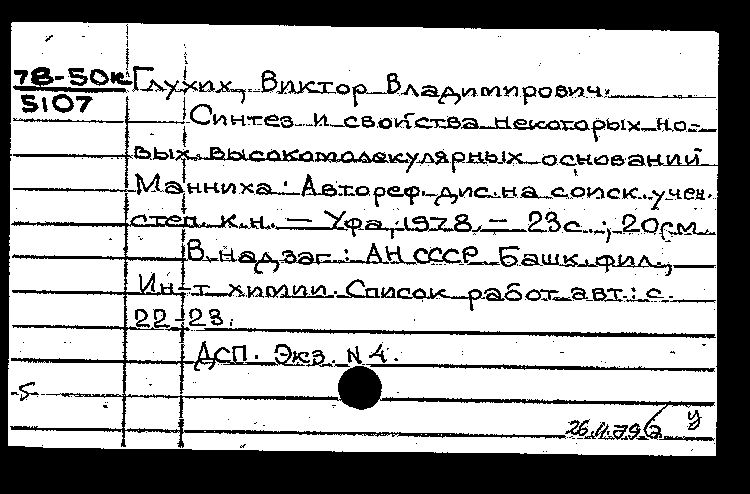 78-50к Глухих, Виктор Владимирович.
5107
Синтез и свойства некоторых но-
вых высокомолекулярных оснований
Манниха: Автореф. дис. на соиск. учен.
степ. к.н. — Уфа, 1978. — 23с.; 20см.
В надзаг.: АН СССР. Башк. фил.,
Ин-т химии. Список работ авт.: с.
22-23.
ДСП. Экз. N 4.
5
у